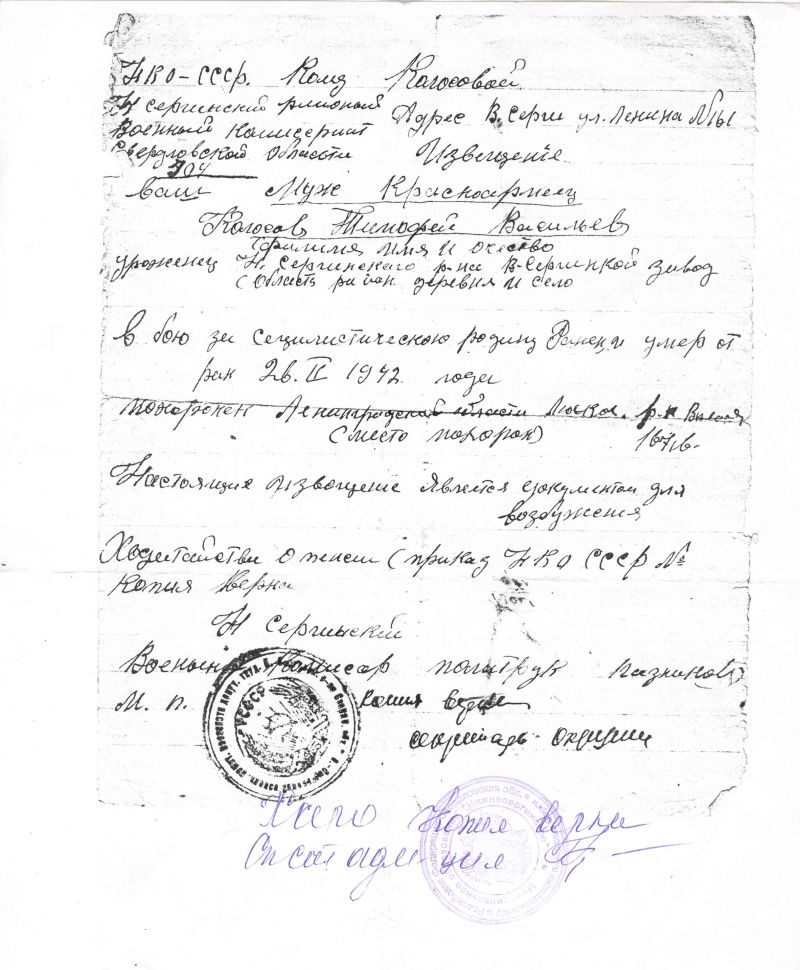 НКО-СССР. Кому Колосовой
Н Сергинский районый Адрес В. Серги ул. Ленина №161
Военный Комисериат
Свердловской области Извещение
ваш Муж Красноармеец
Колосов Тимофей Васильев
фамилия имя и очество
уроженец Н. Сергинского р-на В-Сергинкой завод
(область район деревня и село
в бою за Социлистическою родину Ранен и умер от
ран 2в. II 1942 года
похоронен Ленинградской области
(место похорон)
Настоящие извещение явлется документом для
возбужения
Ходатайстви о пенсии (приказ НКО СССР №
Копия верна
Н Сергинский
Военый Комисар политрук
М. п. Копия верна
секретарь
РСФСР
Копия верна